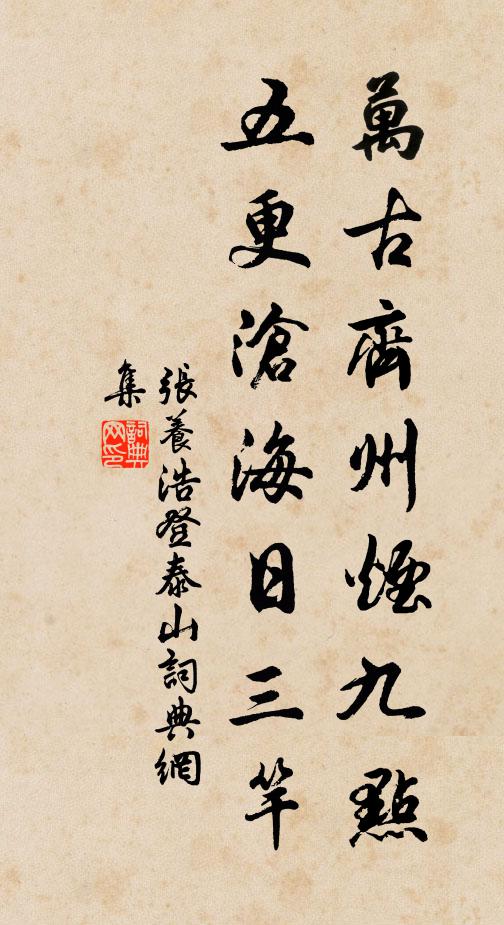 萬古齊州煙九點
五更滄海日三竿
張養浩登泰山詞典網
集
詞典網印